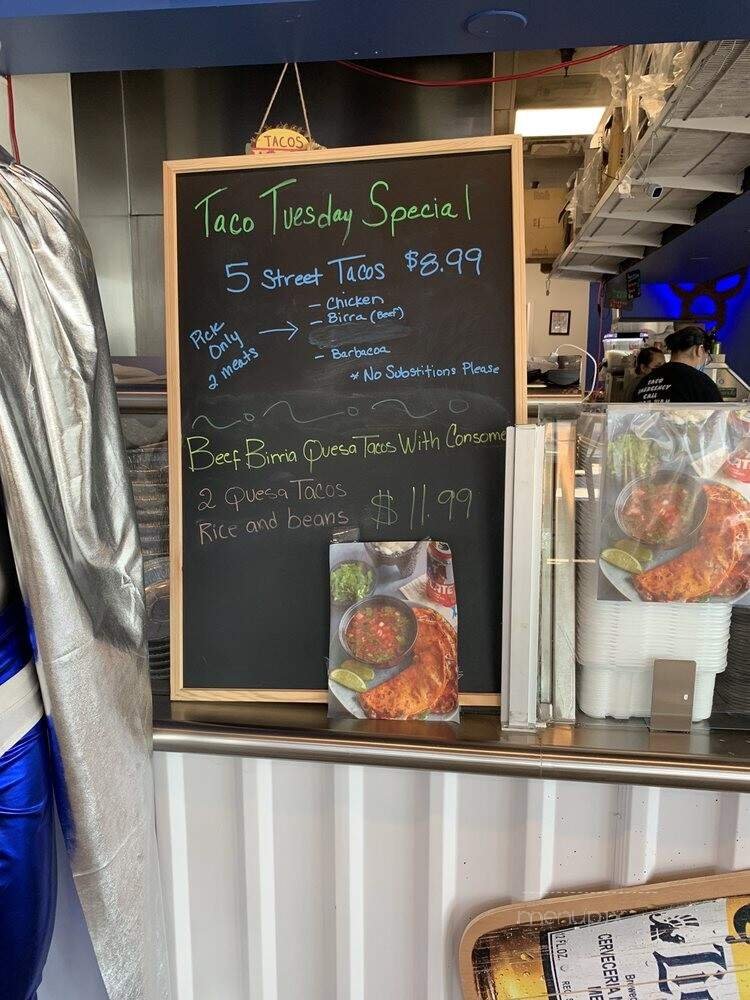 TACOS
Taco Tuesday Special
5 Street Tacos $8.99
- Chicken
- Birra (Beef)
- Barbacoa
Pick
Only
2 meats
* No Substitions Please
Beef Birria Quesa Tacos With Consome
2 Quesa Tacos
Rice and beans $11.99
TACO
EMERGENCY
CALL
menupix
12 FL. OZ.
CERVECERIA
Brewe